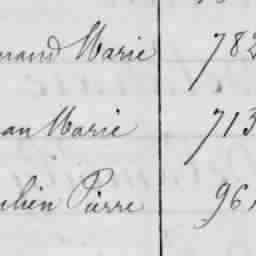 mand Marie 782
an Marie 713
lien Pierre 961